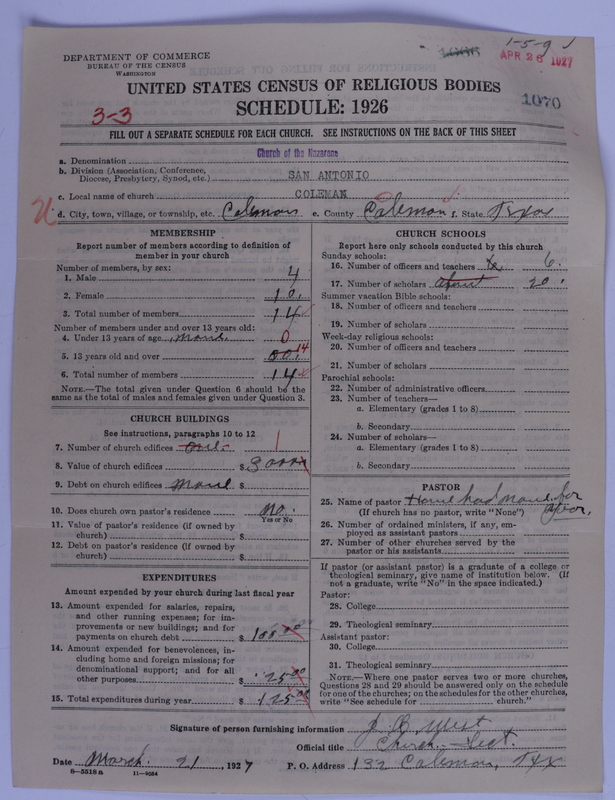 1-5-9
DEPARTMENT OF COMMERCE
BUREAU OF THE CENSUS
WASHINGTON
APR 26 1927
UNITED STATES CENSUS OF RELIGIOUS BODIES
1070
3-3
SCHEDULE: 1926
FILL OUT A SEPARATE SCHEDULE FOR EACH CHURCH. SEE INSTRUCTIONS ON THE BACK OF THIS SHEET
a. Denomination Church of the Nazarene
b. Division (Association, Conference, Diocese, Presbytery, Synod, etc.) SAN ANTONIO
c. Local name of church COLEMAN
d. City, town, village, or township, etc. Coleman e. County Coleman f. State Texas
MEMBERSHIP
Report number of members according to definition of
member in your church
Number of members, by sex:
1. Male 4
2. Female 10
3. Total number of members 14
Number of members under and over 13 years old:
4. Under 13 years of age none 0
5. 13 years old and over 14
6. Total number of members 14
NOTE.—The total given under Question 6 should be the
same as the total of males and females given under Question 3.
CHURCH BUILDINGS
See instructions, paragraphs 10 to 12
7. Number of church edifices one 1
8. Value of church edifices $ 3000
9. Debt on church edifices none $
10. Does church own pastor's residence no.
Yes or No
11. Value of pastor's residence (if owned by
church) $
12. Debt on pastor's residence (if owned by
church) $
EXPENDITURES
Amount expended by your church during last fiscal year
13. Amount expended for salaries, repairs,
and other running expenses; for im-
provements or new buildings; and for
payments on church debt $ 100 00
14. Amount expended for benevolences, in-
cluding home and foreign missions; for
denominational support; and for all
other purposes $ 25 00
15. Total expenditures during year $ 125 00
CHURCH SCHOOLS
Report here only schools conducted by this church
Sunday schools:
16. Number of officers and teachers 6.
17. Number of scholars about 20
Summer vacation Bible schools:
18. Number of officers and teachers
19. Number of scholars
Week-day religious schools:
20. Number of officers and teachers
21. Number of scholars
Parochial schools:
22. Number of administrative officers
23. Number of teachers—
a. Elementary (grades 1 to 8)
b. Secondary
24. Number of scholars—
a. Elementary (grades 1 to 8)
b. Secondary
PASTOR
25. Name of pastor Have had none for
(If church has no pastor, write "None") year.
26. Number of ordained ministers, if any, em-
ployed as assistant pastors
27. Number of other churches served by the
pastor or his assistants
If pastor (or assistant pastor) is a graduate of a college or
theological seminary, give name of institution below. (If
not a graduate, write "No" in the space indicated.)
Pastor:
28. College
29. Theological seminary
Assistant pastor:
30. College
31. Theological seminary
NOTE.—Where one pastor serves two or more churches,
Questions 28 and 29 should be answered only on the schedule
for one of the churches; on the schedules for the other churches,
write "See schedule for church."
Signature of person furnishing information J. B. West
Official title Church Sect.
Date March 21, 1927 P. O. Address 132 Coleman, Tex
8-5518a 11-9554